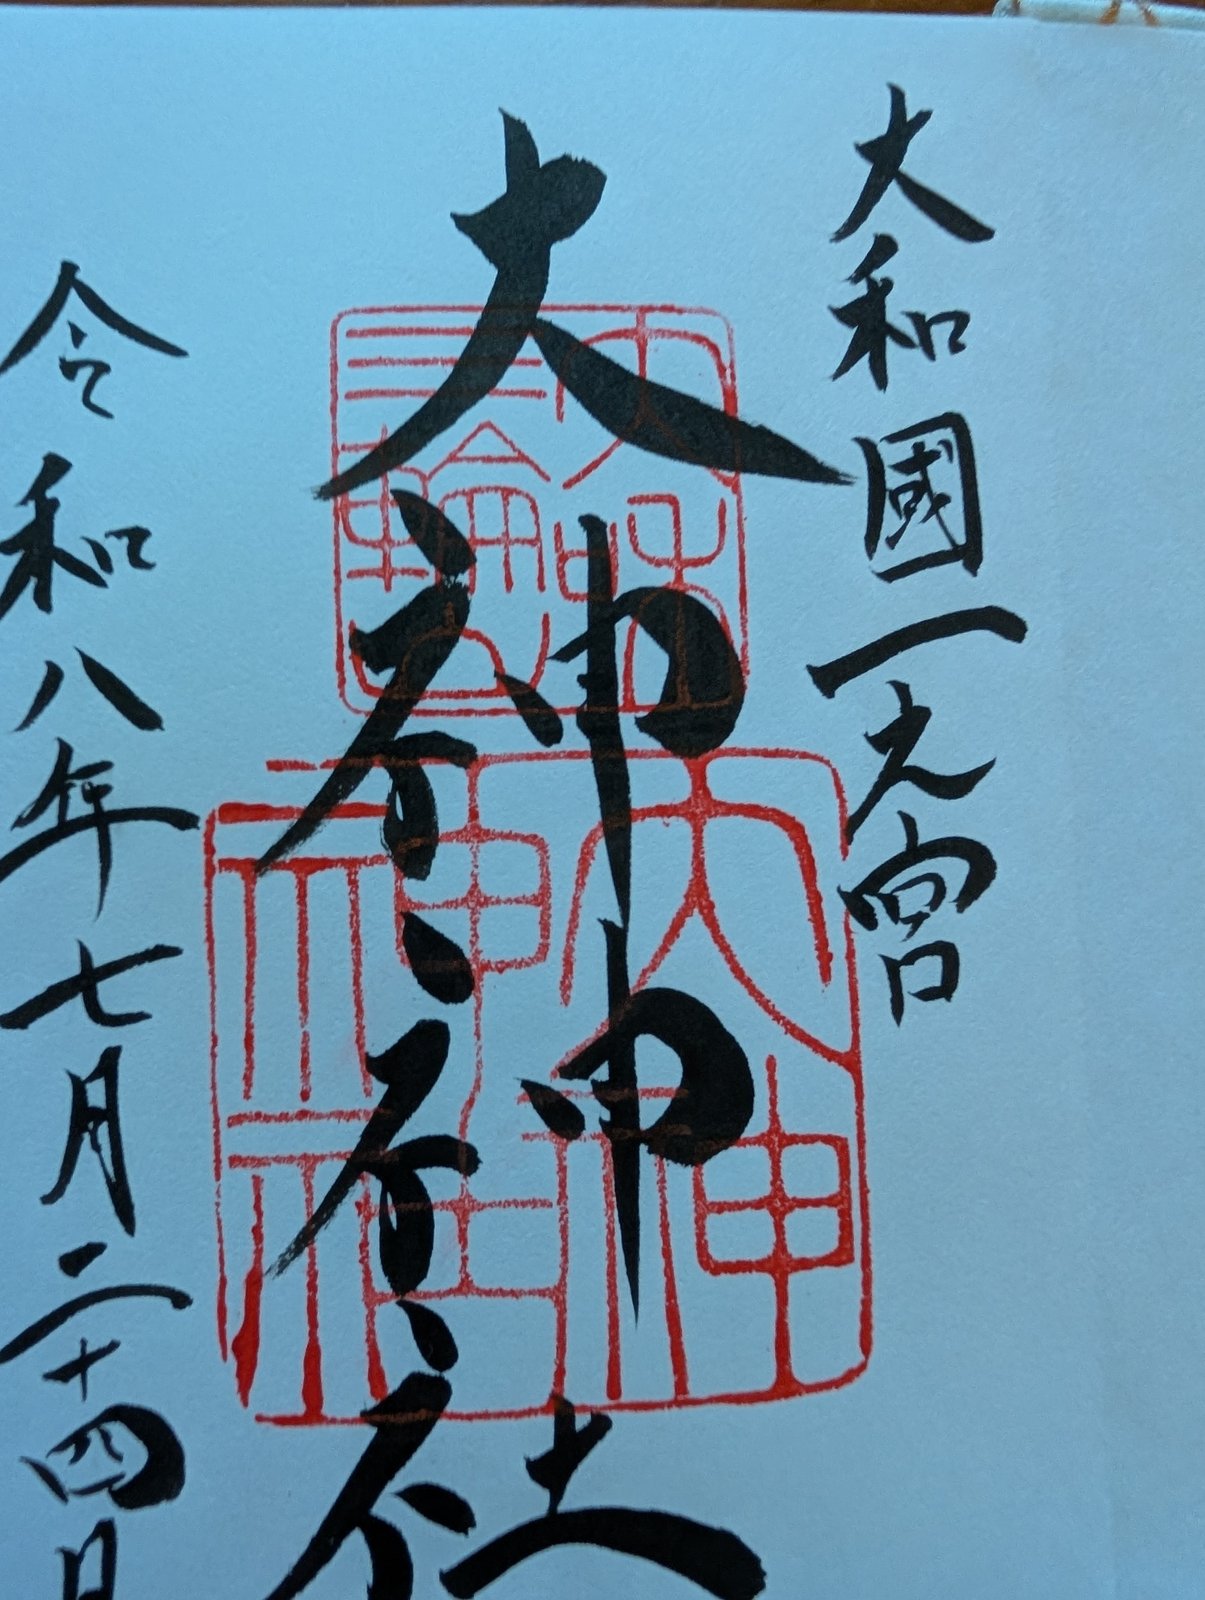 大和國一之宮
大神神社
令和八年七月二十四日
大神
神社